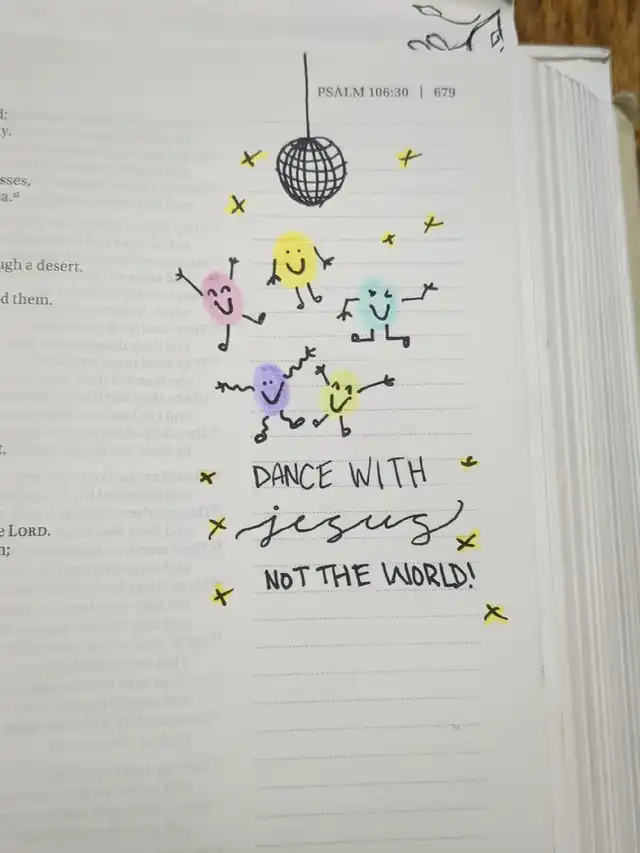 PSALM 106:30 | 679
d:
y.
sses,
a.ᵃ
ugh a desert.
d them.
t.
e LORD.
n;
DANCE WITH
jesus
NOT THE WORLD!